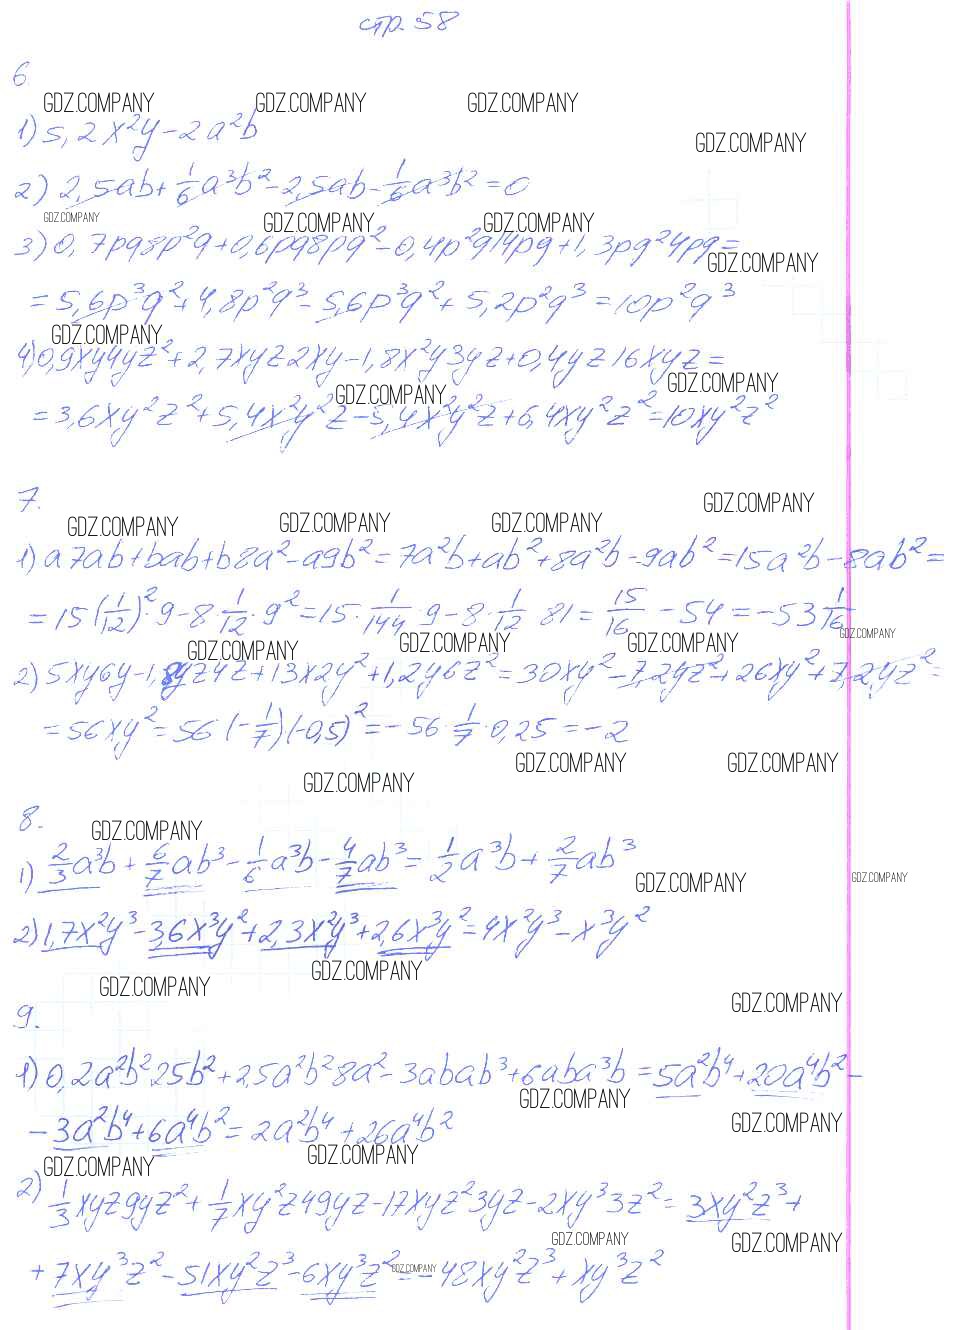 стр. 58
6.
GDZ.COMPANY GDZ.COMPANY GDZ.COMPANY
1) 5,2x²y-2a²b
GDZ.COMPANY
2) 2,5ab+1/6a³b²-2,5ab-1/6a³b²=0
GDZ.COMPANY GDZ.COMPANY GDZ.COMPANY
3) 0,7pq8p²q+0,6pq8pq²-0,4p²q14pq+1,3pq²4pq=
GDZ.COMPANY
=5,6p³q²+4,8p²q³-5,6p³q²+5,2p²q³=10p²q³
GDZ.COMPANY
4) 0,9xy4yz²+2,7xyz2xy-1,8x²y3yz+0,4yz16xyz=
GDZ.COMPANY GDZ.COMPANY
=3,6xy²z²+5,4x²y²z-5,4x²y²z+6,4xy²z²=10xy²z²
7.
GDZ.COMPANY
GDZ.COMPANY GDZ.COMPANY GDZ.COMPANY
1) a7ab+bab+b8a²-a9b²=7a²b+ab²+8a²b-9ab²=15a²b-8ab²=
=15(1/12)²·9-8·1/12·9²=15·1/144·9-8·1/12·81=15/16-54=-53 1/16
GDZ.COMPANY
GDZ.COMPANY GDZ.COMPANY GDZ.COMPANY
2) 5xy6y-1,8yz4z+13x2y²+1,2y6z²=30xy²-7,2yz²+26xy²+7,2yz²=
=56xy²=56·(-1/7)(-0,5)²=-56·1/7·0,25=-2
GDZ.COMPANY GDZ.COMPANY
GDZ.COMPANY
8.
GDZ.COMPANY
1) 2/3a³b+6/7ab³-1/6a³b-4/7ab³=1/2a³b+2/7ab³
GDZ.COMPANY GDZ.COMPANY
2) 1,7x²y³-3,6x³y²+2,3x²y³+2,6x³y²=4x²y³-x³y²
GDZ.COMPANY
GDZ.COMPANY
GDZ.COMPANY
9.
1) 0,2a²b²25b²+2,5a²b²8a²-3abab³+6aba³b=5a²b⁴+20a⁴b²-
GDZ.COMPANY
-3a²b⁴+6a⁴b²=2a²b⁴+26a⁴b²
GDZ.COMPANY
GDZ.COMPANY GDZ.COMPANY
2) 1/3xyz9yz²+1/7xy²z49yz-17xyz²3yz-2xy³3z²=3xy²z³+
GDZ.COMPANY GDZ.COMPANY
+7xy³z²-51xy²z³-6xy³z²=-48xy²z³+xy³z²
GDZ.COMPANY